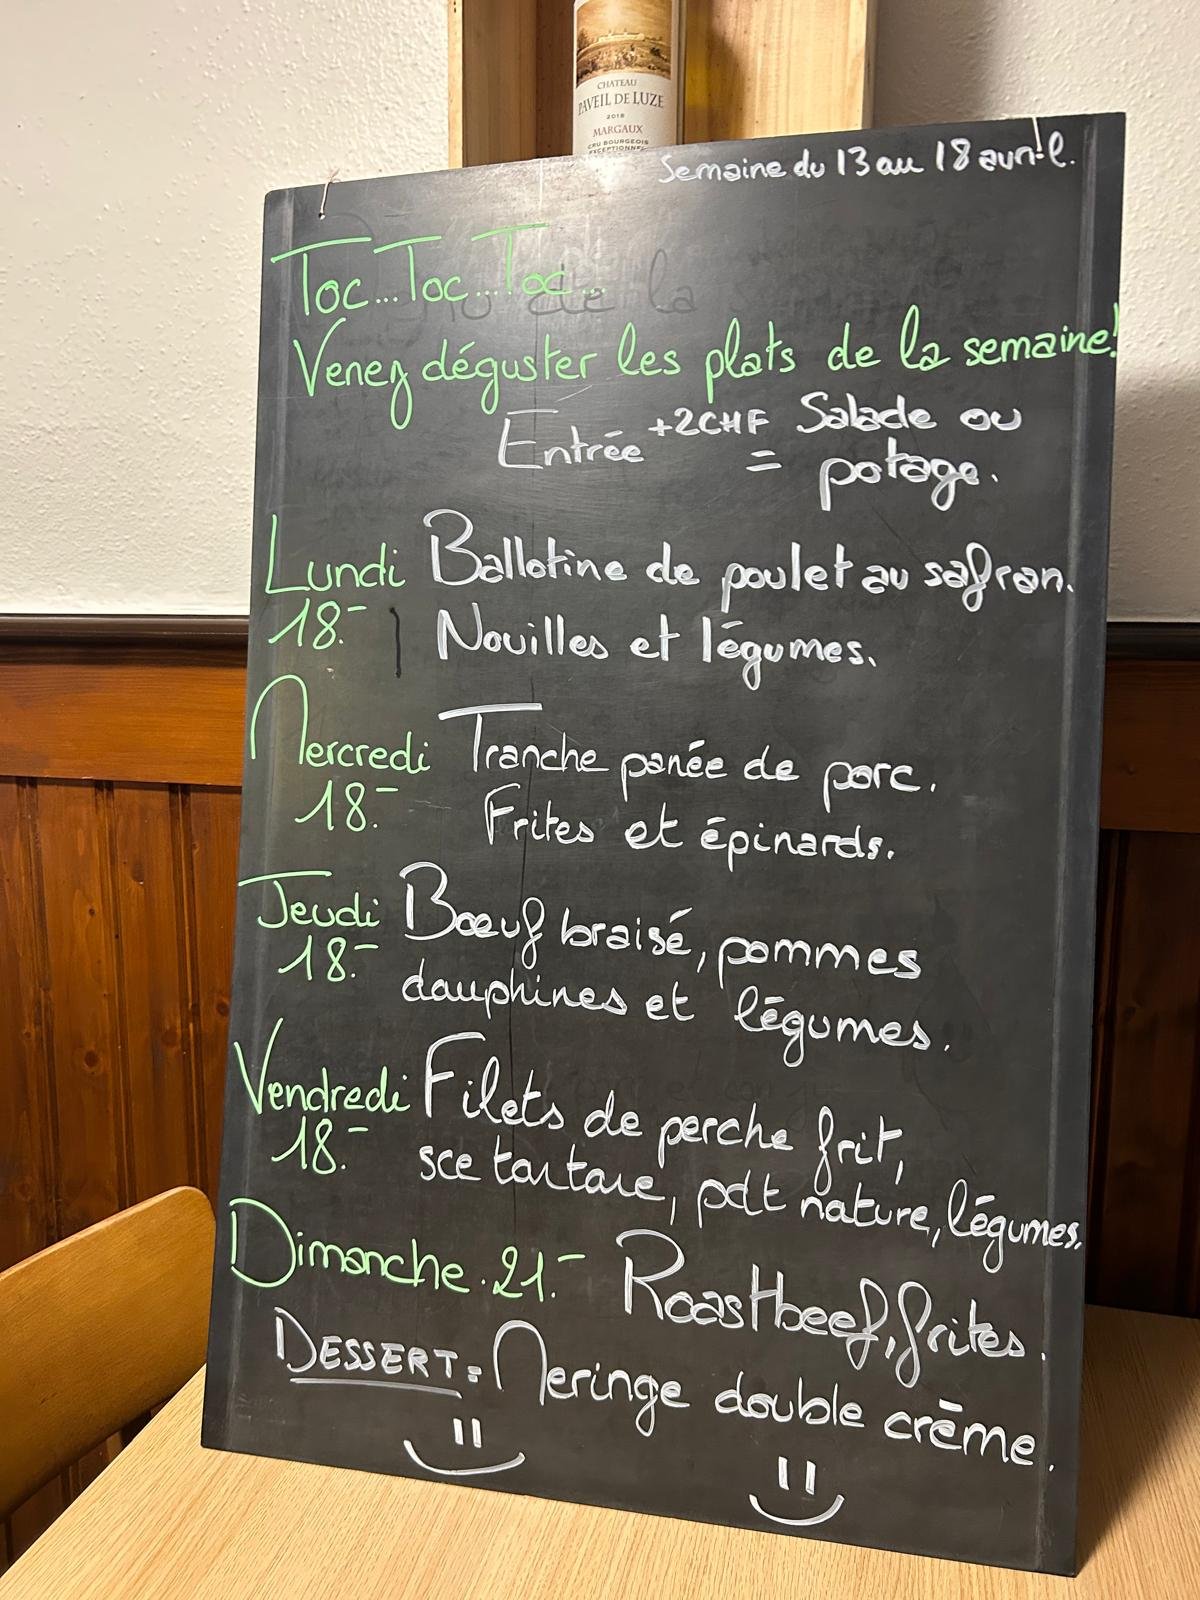 CHATEAU
PAVEIL DE LUZE
2018
MARGAUX
CRU BOURGEOIS
EXCEPTIONNEL
Semaine du 13 au 18 avril.
Toc...Toc...Toc...
Venez déguster les plats de la semaine!
Entrée +2CHF = Salade ou
potage.
Lundi Ballotine de poulet au safran.
18.- Nouilles et légumes.
Mercredi Tranche panée de porc.
18.- Frites et épinards.
Jeudi Bœuf braisé, pommes
18.- dauphines et légumes.
Vendredi Filets de perche frit,
18.- sce tartare, pdt nature, légumes.
Dimanche. 21.- Roastbeef, frites.
DESSERT = Meringe double crème.